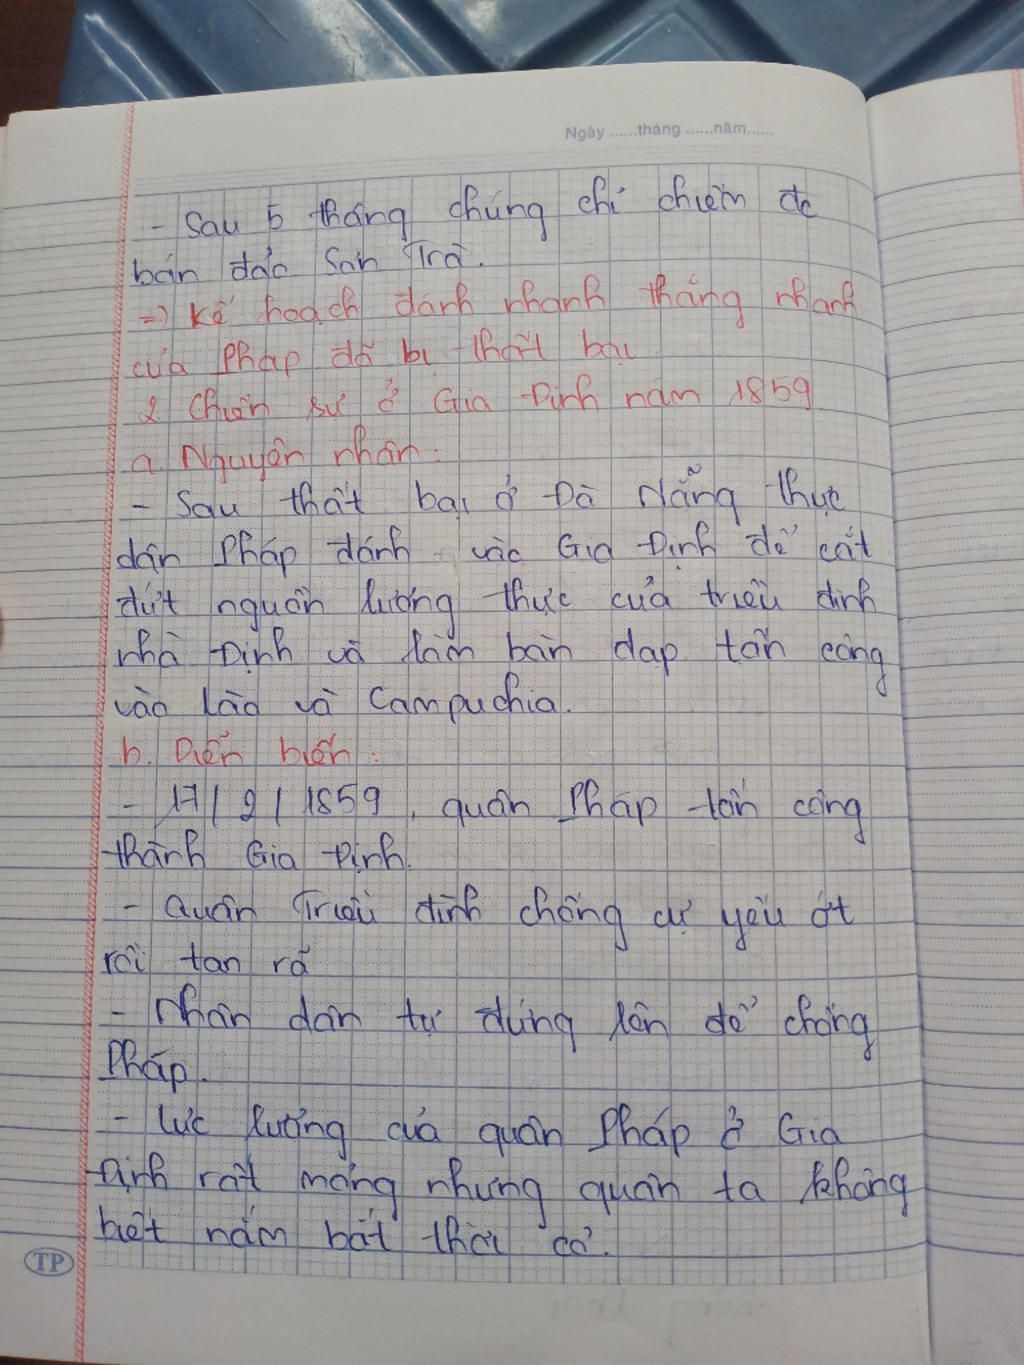 Ngày ......tháng ......năm......
- Sau 5 tháng chúng chỉ chiếm đc
bán đảo Sơn Trà.
=> Kế hoạch đánh nhanh thắng nhanh
của Pháp đã bị thất bại
2. Chiến sự ở Gia Định năm 1859
a. Nguyên nhân:
- Sau thất bại ở Đà Nẵng thực
dân Pháp đánh vào Gia Định để cắt
đứt nguồn lương thực của triều đình
nhà Định và làm bàn đạp tấn công
vào Lào và Campuchia.
b. Diễn biến:
- 17/2/1859, quân Pháp tấn công
thành Gia Định.
- Quân Triều đình chống cự yếu ớt
rồi tan rã
- Nhân dân tự đứng lên để chống
Pháp.
- Lực lượng của quân Pháp ở Gia
Định rất mỏng nhưng quân ta không
biết nắm bắt thời cơ.
TP